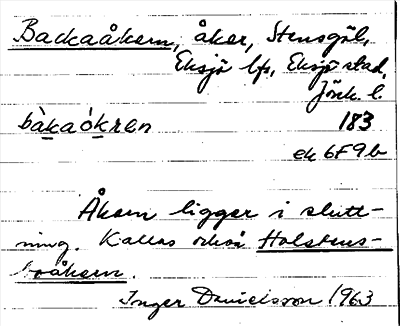 Backaåkern, åker, Stensgöl,
Eksjö lfs, Eksjö stad,
Jönk. l.
bàkaåkren 183
ek 6F9b
Åkern ligger i slutt-
ning. Kallas också Holstens-
boåkern.
Inger Danielsson 1963